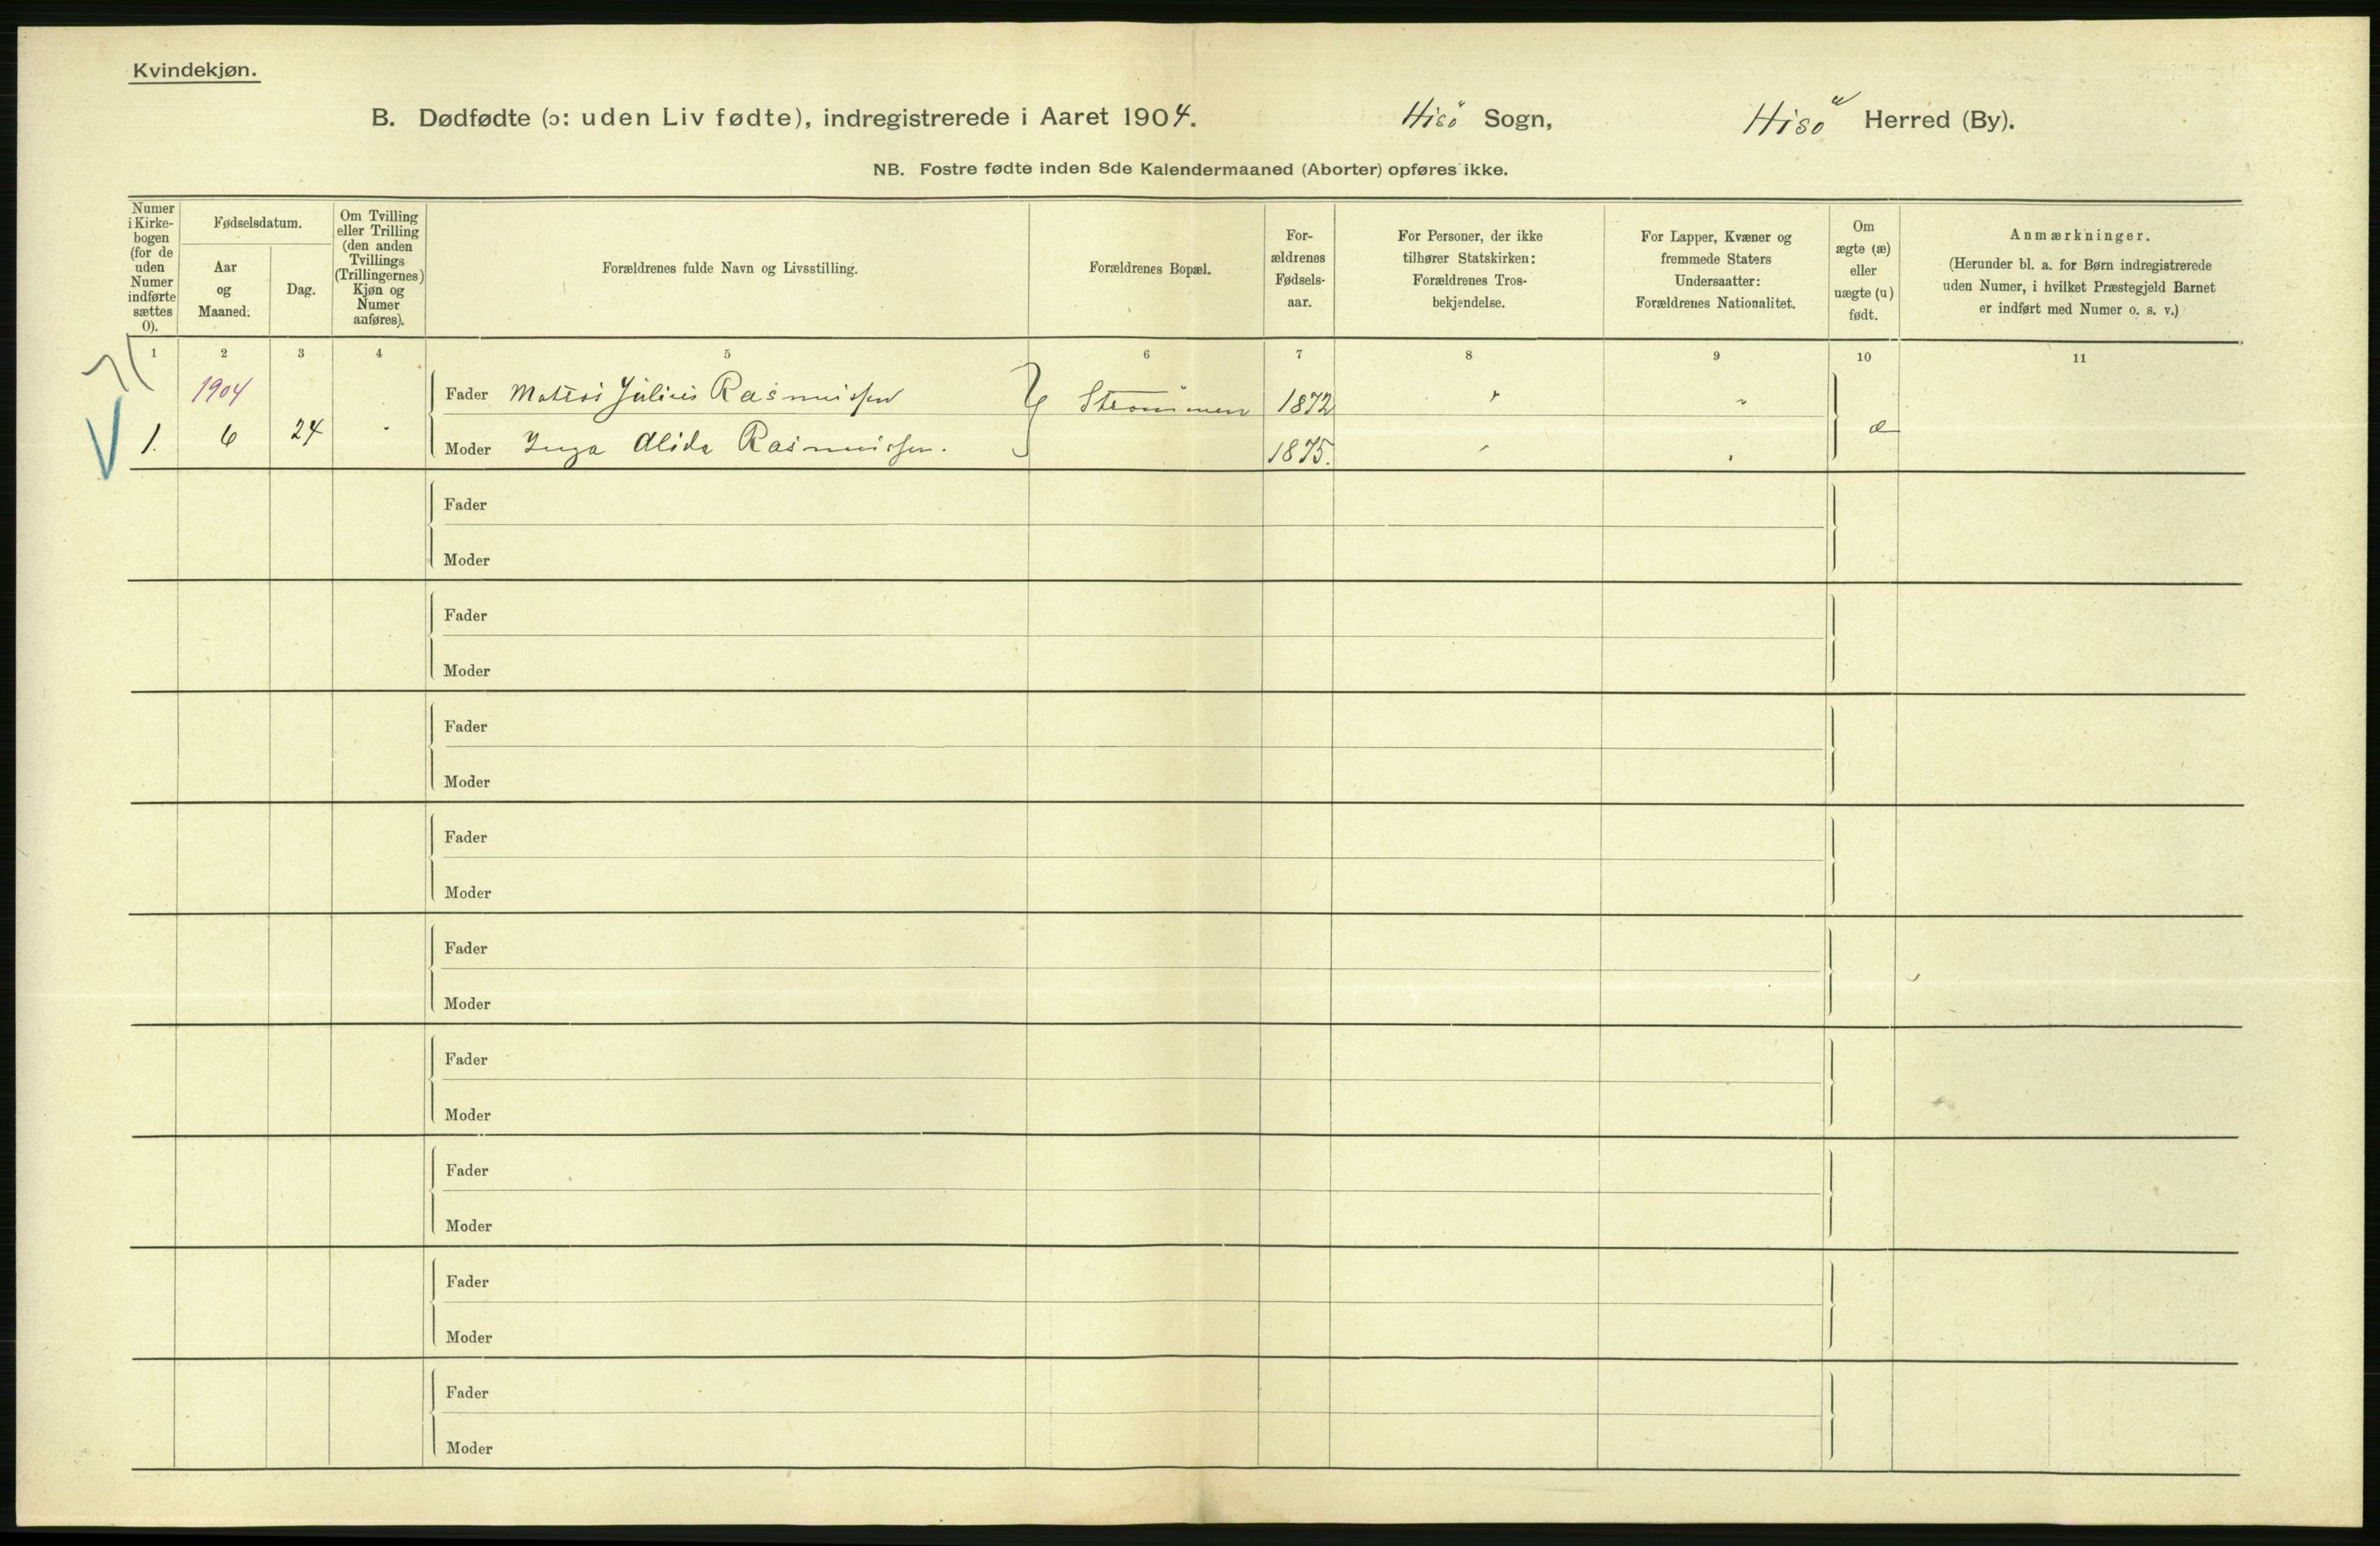 Kvindekjøn.
B. Dødfødte (ɔ: uden Liv fødte), indregistrerede i Aaret 1904. Hisö Sogn, Hisö Herred (By).
NB. Fostre fødte inden 8de Kalendermaaned (Aborter) opføres ikke.
Numer i Kirke-bogen (for de uden Numer indførte sættes 0).
Fødselsdatum.
Aar og Maaned.
Dag.
Om Tvilling eller Trilling (den anden Tvillings (Trillingernes) Kjøn og Numer anføres).
Forældrenes fulde Navn og Livsstilling.
Forældrenes Bopæl.
For-ældrenes Fødsels-aar.
For Personer, der ikke tilhører Statskirken: Forældrenes Tros-bekjendelse.
For Lapper, Kvæner og fremmede Staters Undersaatter: Forældrenes Nationalitet.
Om ægte (æ) eller uægte (u) født.
Anmærkninger.
(Herunder bl. a. for Børn indregistrerede uden Numer, i hvilket Præstegjeld Barnet er indført med Numer o. s. v.)
1 2 3 4 5 6 7 8 9 10 11
1904 Fader Julius Rasmussen Strömmen 1872 " "
1. 6 24 " Moder Inga Alida Rasmussen. 1875. " " æ
Fader
Moder
Fader
Moder
Fader
Moder
Fader
Moder
Fader
Moder
Fader
Moder
Fader
Moder
Fader
Moder
Fader
Moder